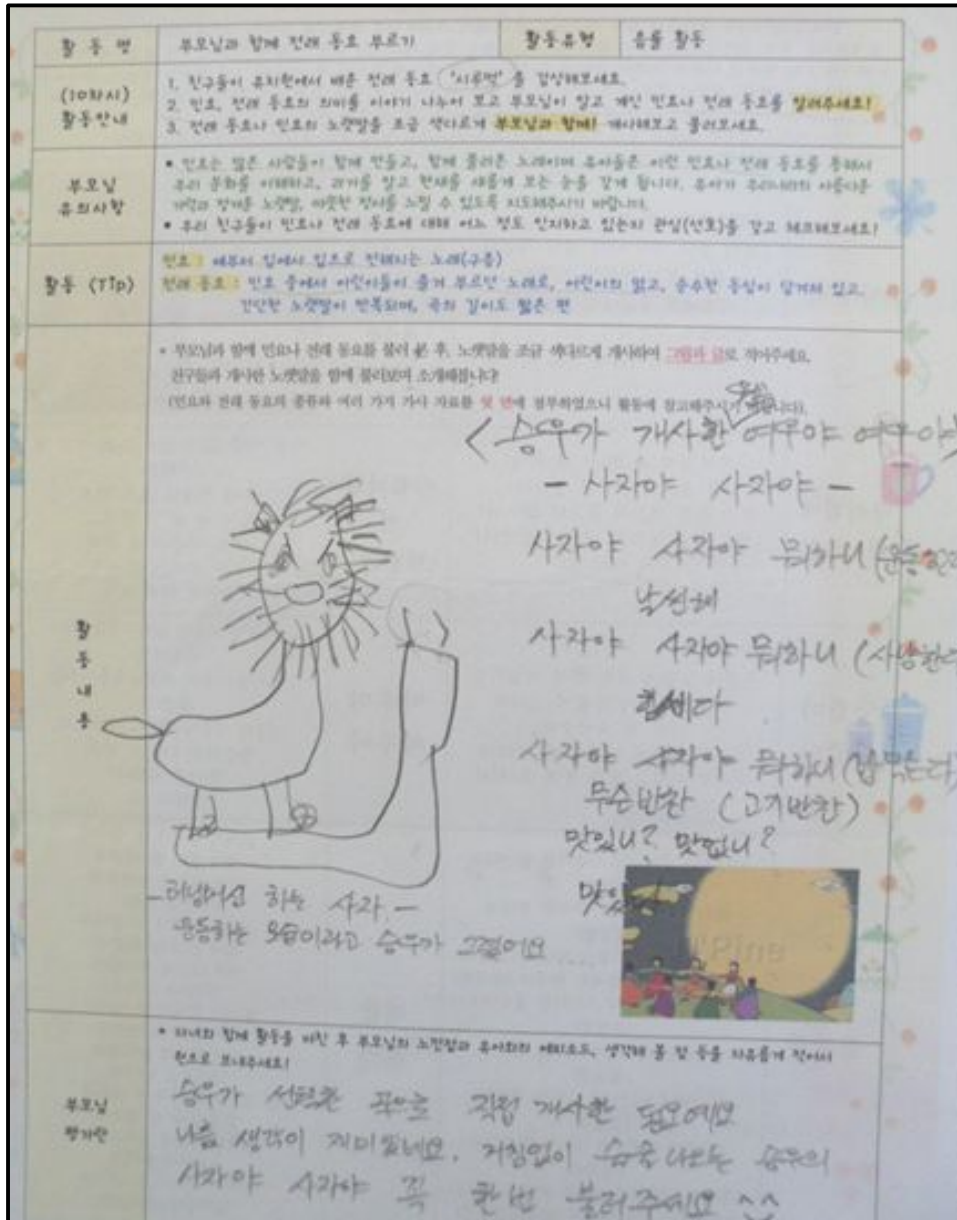 활 동 명
부모님과 함께 전래 동요 부르기
활동유형
음률 활동
(10차시)
활동안내
1. 친구들이 유치원에서 배운 전래 동요 '시루떡'을 감상해보세요.
2. 민요, 전래 동요의 의미를 이야기 나누어 보고 부모님이 알고 계신 민요나 전래 동요를 알려주세요!
3. 전래 동요나 민요의 노랫말을 조금 색다르게 부모님과 함께! 개사해보고 불러보세요.
부모님
유의사항
• 민요는 많은 사람들이 함께 만들고, 함께 불러온 노래이며 유아들은 이런 민요나 전래 동요를 통해서
우리 문화를 이해하고, 과거를 알고 현재를 새롭게 보는 눈을 갖게 됩니다. 유아가 우리나라의 아름다운
가락과 정겨운 노랫말, 따뜻한 정서를 느낄 수 있도록 지도해주시기 바랍니다.
• 우리 친구들이 민요나 전래 동요에 대해 어느 정도 인지하고 있는지 관심(선호)을 갖고 체크해보세요!
활동 (Tip)
민요 : 예부터 입에서 입으로 전해지는 노래(구음)
전래 동요 : 민요 중에서 어린이들이 즐겨 부르던 노래로, 어린이의 맑고, 순수한 동심이 담겨져 있고,
간단한 노랫말이 반복되며, 곡의 길이도 짧은 편
활
동
내
용
* 부모님과 함께 민요나 전래 동요를 불러 본 후, 노랫말을 조금 색다르게 개사하여 그림과 글로 적어주세요.
친구들과 개사한 노랫말을 함께 불러보며 소개해봅니다!
(민요와 전래 동요의 종류와 여러 가지 가사 자료를 뒷 면에 첨부하였으니 활동에 참고해주시기 바랍니다).
<승우가 개사한 여우야 여우야>
- 사자야 사자야 -
사자야 사자야 뭐하니 (운동한다
날씬해
사자야 사자야 뭐하니 (사냥한다
힘세다
사자야 사자야 뭐하니 (밥먹는다)
무슨반찬 (고기반찬)
맛있니? 맛없니?
맛있다
-러닝머신 하는 사자-
운동하는 모습이라고 승우가 그렸어요
부모님
평가란
* 자녀와 함께 활동을 마친 후 부모님의 느낀점과 유아와의 에피소드, 생각해 볼 점 등을 자유롭게 적어서
원으로 보내주세요!
승우가 선택한 곡으로 직접 개사한 동요예요
나름 생각이 재미있네요. 거침없이 술술 나오는 승우의
사자야 사자야 꼭 한번 불러주세요 ^^